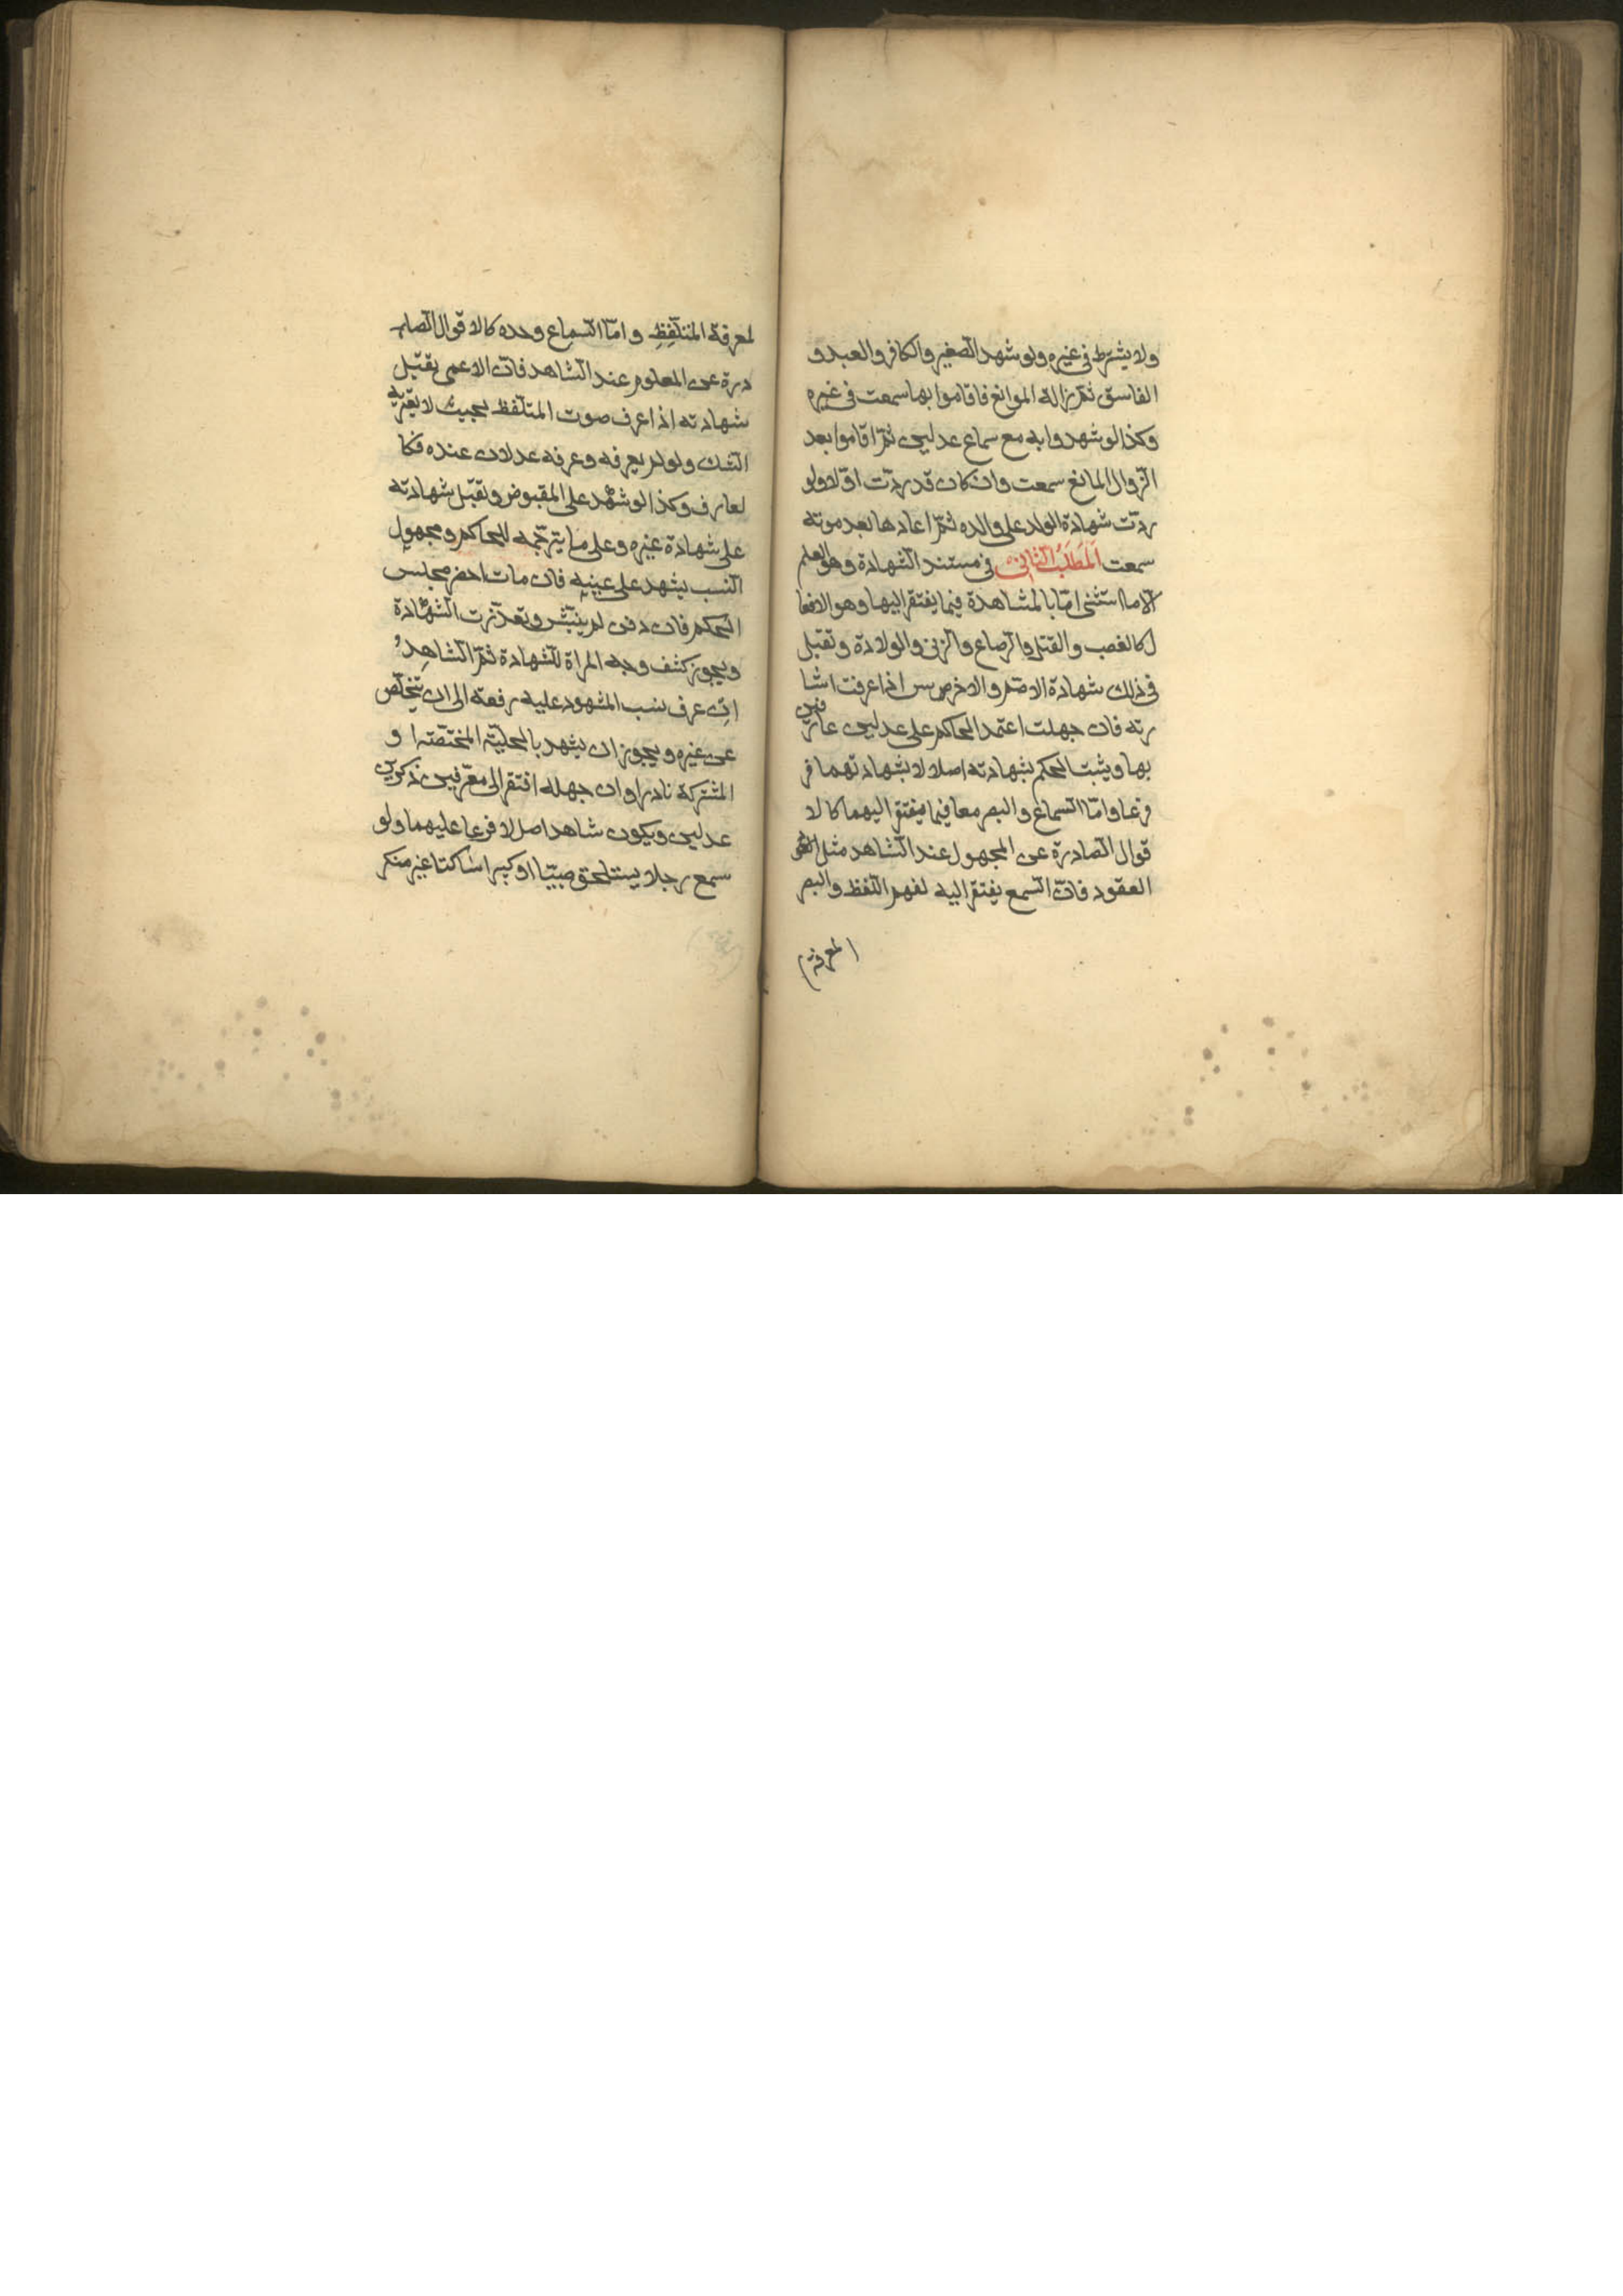 ولا يشترط فى غيره ولو شهد الصغير والكافر والعبد و
الفاسق ثم زالة الموانع فاقاموا بها سمعت فى غيره
وكذا لو شهدوا به مع سماع عدلين ثمّ اقاموا بعد
الزوال المانع سمعت وان كان قد ردّت اوّلا ولو
ردّت شهادة الولد على والده ثمّ اعادها بعد موته
سمعت اَلمَطلَبُ الثّانى فى مستند الشهادة وهو العلم
الّا ما استثنى امّا بالمشاهدة فيما يفتقر اليها وهو الافعا
ل كالغصب والقتل والرّضاع والزنى والولادة وتقبل
فى ذلك شهادة الاصمّ والاخرس اذا عرفت اشا
رته فان جهلت اعتمد الحاكم على عدلين عارفين
بها ويثبت الحكم بشهادته اصلا لا بشهادتهما فر
فرعا وامّا السماع والبصر معا فيما يفتقر اليهما كالا
قوال الصّادرة عن المجهول عند الشاهد مثل
العقود فانّ السّمع يفتقر اليه لفهم اللفظ والبصر
لمعرفة
لمعرفة المتلّفِظِ وامّا السّماع وحده كالاقوال الصا
درة عن المعلوم عند الشاهد فانّ الاعمى تقبّل
شهادته اذا عرف صوت المتلّفظ بحيث لا يعتريه
الشك ولو لم يعرفه وعرفه عدلان عنده فكا
لعارف وكذا لو شهد على المقبوض وتقبّل شهادته
على شهادة غيره وعلى ما يترجّمه للحاكم ومجهول
النسب يشهد على عينه فان مات احضر مجلس
الحكم فان دفن لم ينبش وتعذّرت الشهادة
ويجوز كشف وجه المراة للشهادة ثمّ الشاهدُ
ان عرف نسب المشهود عليه رفعه الى ان يتخلّص
عن غيره ويجوز ان يشهد بالحلية المختصّة او
المشتركة نادرا وان جهله افتقر الى معرّفين ذكرين
عدلين ويكون شاهد اصل لا فرعا عليهما ولو
سمع رجلا يستلحق صبيّا او كبيرا ساكتا غير منكر